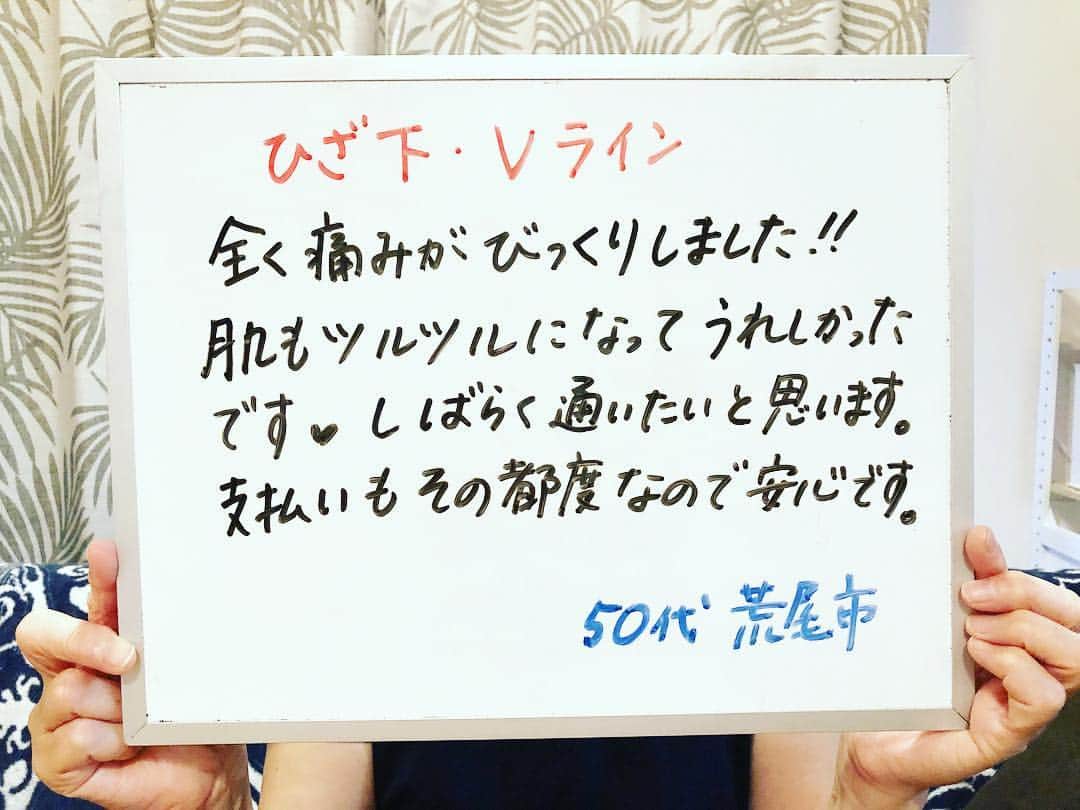 ひざ下・Vライン
全く痛みがびっくりしました!!
肌もツルツルになってうれしかった
です♥しばらく通いたいと思います。
支払いもその都度なので安心です。
50代 荒尾市